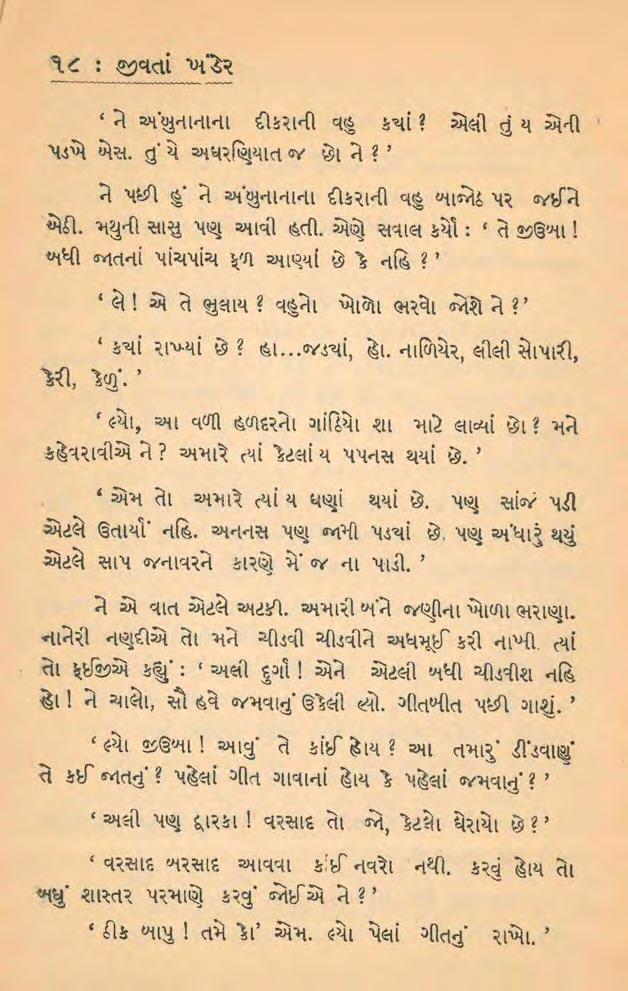 ૧૮ : જીવતાં ખંડેર
‘ ને અંબુનાનાના દીકરાની વહુ ક્યાં ? એલી તું ય એની
પડખે બેસ. તું યે અધરણિયાત જ છો ને ? ’
ને પછી હું ને અંબુનાનાના દીકરાની વહુ બાજોઠ પર જઈને
બેઠી. મથુની સાસુ પણ આવી હતી. એણે સવાલ કર્યો : ‘ તે જીઉબા !
બધી જાતનાં પાંચપાંચ ફળ આણ્યાં છે કે નહિ ? ’
‘ લે ! એ તે ભુલાય ? વહુનો ખોળો ભરવો જોશે ને ?’
‘ ક્યાં રાખ્યાં છે ? હા...જડ્યાં, હો. નાળિયેર, લીલી સોપારી,
કેરી, કેળું. ’
‘ લ્યો, આ વળી હળદરનો ગાંઠિયો શા માટે લાવ્યાં છો ? મને
કહેવરાવીએ ને ? અમારે ત્યાં કેટલાં ય પપનસ થયાં છે. ’
‘ એમ તો અમારે ત્યાં ય ઘણાં થયાં છે. પણ સાંજ પડી
એટલે ઉતાર્યાં નહિ. અનનસ પણ જામી પડ્યાં છે. પણ અંધારું થયું
એટલે સાપ જનાવરને કારણે મેં જ ના પાડી. ’
ને એ વાત એટલે અટકી. અમારી બંને જણીના ખોળા ભરાણા.
નાનેરી નણદીએ તો મને ચીડવી ચીડવીને અધમૂઈ કરી નાખી. ત્યાં
તો ફઈજીએ કહ્યું : ‘ અલી દુર્ગા ! એને એટલી બધી ચીડવીશ નહિ
હો ! ને ચાલો, સૌ હવે જમવાનું ઉકેલી લ્યો. ગીતબીત પછી ગાશું. ’
‘ લ્યો જીઉબા ! આવું તે કાંઈ હોય ? આ તમારું ડીંડવાણું
તે કઈ જાતનું ? પહેલાં ગીત ગાવાનાં હોય કે પહેલાં જમવાનું ? ’
‘ અલી પણ દ્વારકા ! વરસાદ તો જો, કેટલો ઘેરાયો છે ? ’
‘ વરસાદ બરસાદ આવવા કંઈ નવરો નથી. કરવું હોય તો
બધું શાસ્તર પરમાણે કરવું જોઈએ ને ? ’
‘ ઠીક બાપુ ! તમે કો’ એમ. લ્યો પેલાં ગીતનું રાખો. ’